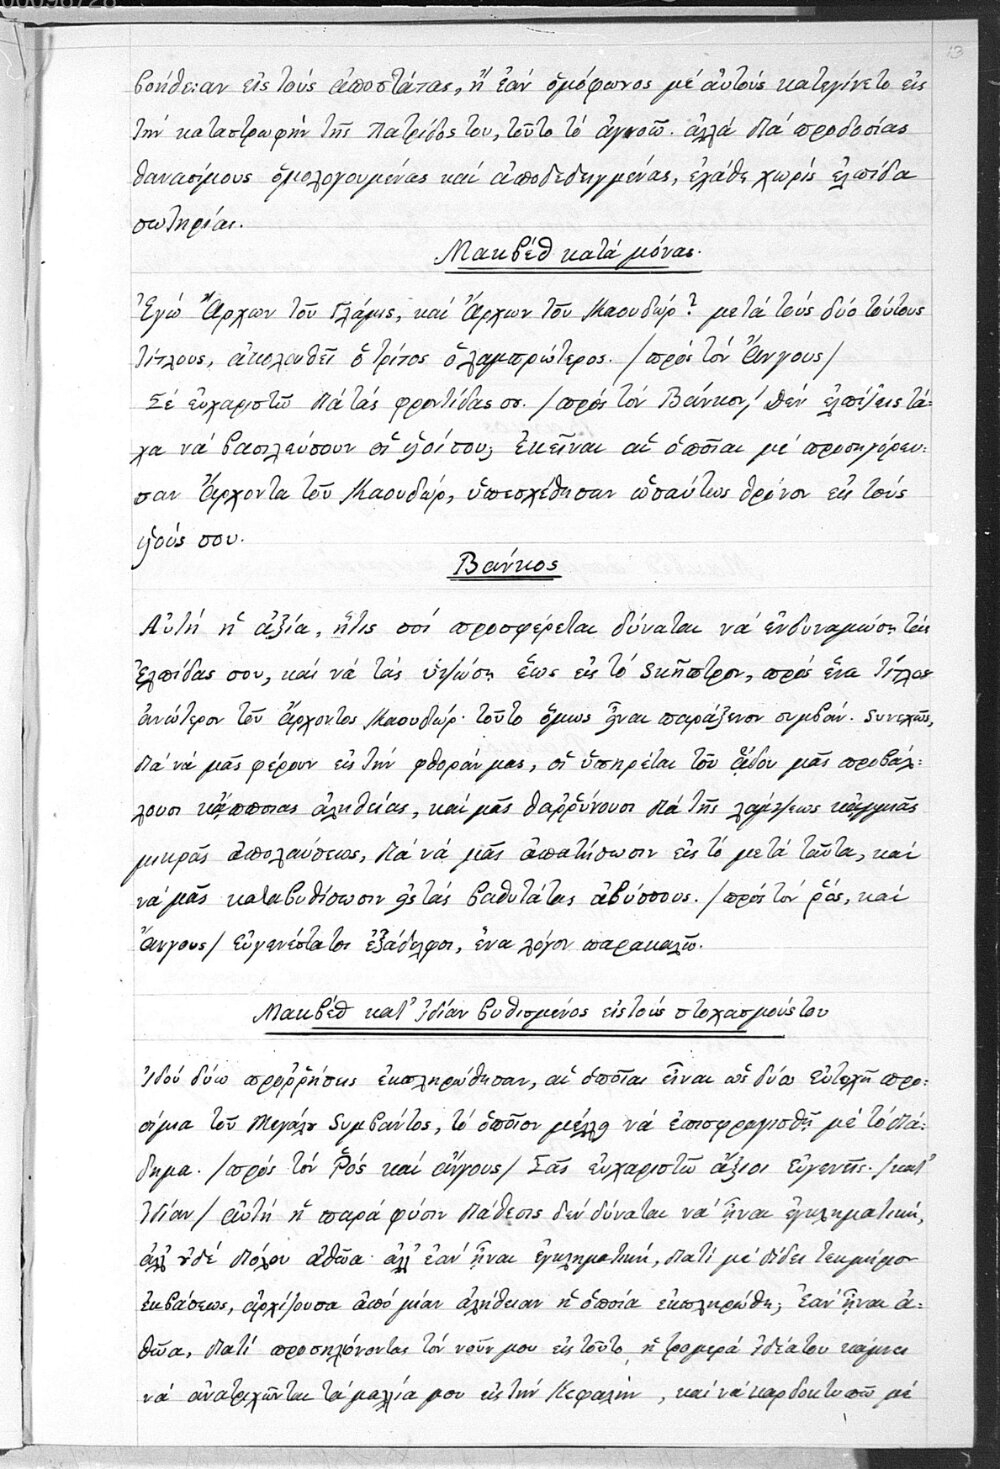 00098728
13
βοήθειαν εἰς τούς ἀποστάτας, ἤ ἐάν ὁμόφωνος μέ αὐτούς κατεγίνετο εἰς
τήν καταστροφήν τῆς Πατρίδος του, τοῦτο τό ἀγνοῶ· ἀλλά διά προδοσίας
θανασίμους ὁμολογουμένας καί ἀποδεδειγμένας, ἐχάθη χωρίς ἐλπίδα
σωτηρίας.
Μακβέθ κατά μόνας.
Ἐγώ Ἄρχων τοῦ Γλάμις, καί Ἄρχων τοῦ Καουδώρ? μετά τούς δύο τούτους
τίτλους, ἀκολουθεῖ ὁ τρίτος ὁ λαμπρότερος. /πρός τόν Ἄνγους/
Σέ εὐχαριστῶ διά τάς φροντίδας σου. /πρός τόν Βάνκον/ δέν ἐλπίζεις τά-
χα νά βασιλεύσουν οἱ υἱοί σου; ἐκεῖναι αἱ ὁποῖαι μέ προσηγόρευ-
σαν Ἄρχοντα τοῦ Καουδώρ, ὑπεσχέθησαν ὡσαύτως θρόνον εἰς τούς
υἱούς σου.
Βάνκος
Αὐτή ἡ ἀξία, ἥτις σοί προσφέρεται δύναται νά ἐνδυναμώσῃ τάς
ἐλπίδας σου, καί νά τάς ὑψώσῃ ἕως εἰς τό Σκῆπτρον, πρός ἕνα τίτλον
ἀνώτερον τοῦ Ἄρχοντος Καουδώρ· τοῦτο ὅμως εἶναι παράξενον συμβάν. Συνεχῶς,
διά νά μᾶς φέρουν εἰς τήν φθοράν μας, οἱ ὑπηρέται τοῦ ᾅδου μᾶς προβάλ-
λουσι κᾄποιας ἀληθείας, καί μᾶς θαῤῥύνουσι διά τῆς λάμψεως κᾀμμιᾶς
μικρᾶς ἀπολαύσεως, διά νά μᾶς ἀπατήσωσιν εἰς τό μετά ταῦτα, καί
νά μᾶς καταβυθίσωσιν εἰς τάς βαθυτάτας ἀβύσσους. /πρός τόν ῥός, καί
Ἄνγους/ Εὐγενέστατοι ἐξάδελφοι, ἕνα λόγον παρακαλῶ.
Μακβέθ κατ' ἰδίαν βυθισμένος εἰς τούς στοχασμούς του
Ἰδού δύω προῤῥήσεις ἐκπληρώθησαν, αἱ ὁποῖαι εἶναι ὡς δύω εὐτυχῆ προ-
οίμια τοῦ Μεγάλου Συμβάντος, τό ὁποῖον μέλλει νά ἐπισφραγισθῇ μέ τό διά-
δημα. /πρός τόν Ῥός καί ἄνγους/ Σᾶς εὐχαριστῶ ἄξιοι εὐγενεῖς. /κατ'
ἰδίαν/ αὐτή ἡ παρά φύσιν διάθεσις δέν δύναται νά ἦναι ἐγκληματική,
ἀλλ' οὐδέ διόλου ἀθῶα· ἀλλ' ἐάν ἦναι ἐγκληματική, διατί μέ δίδει τεκμήριον
ἐκβάσεως, ἀρχίζουσα ἀπό μίαν ἀλήθειαν ἡ ὁποία ἐκπληρώθη; ἐάν ἦναι ἀ-
θῶα, διατί προσηλόνοντας τόν νοῦν μου εἰς τοῦτο, ἡ τρομερά ἰδέα του κάμνει
νά ἀνατριχῶνται τά μαλλία μου εἰς τήν Κεφαλήν, καί νά καρδοκτυπῶ μέ